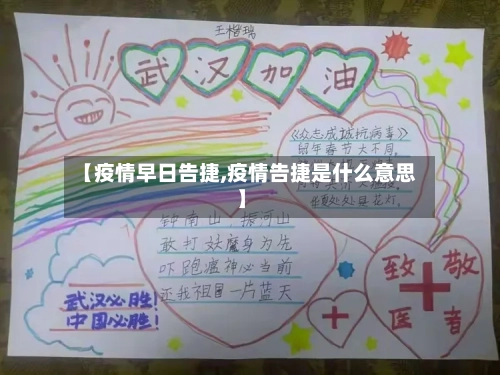 王楷瑞
武汉加油
《众志成城抗病毒》
鼠年春节大不同,
【疫情早日告捷,疫情告捷是什么意思
】
处处是花灯。
钟南山,振河山
敢打妖魔身为先
吓跑瘟神必当前
还我祖国一片蓝天
武汉必胜!
中国必胜!
致敬
医者